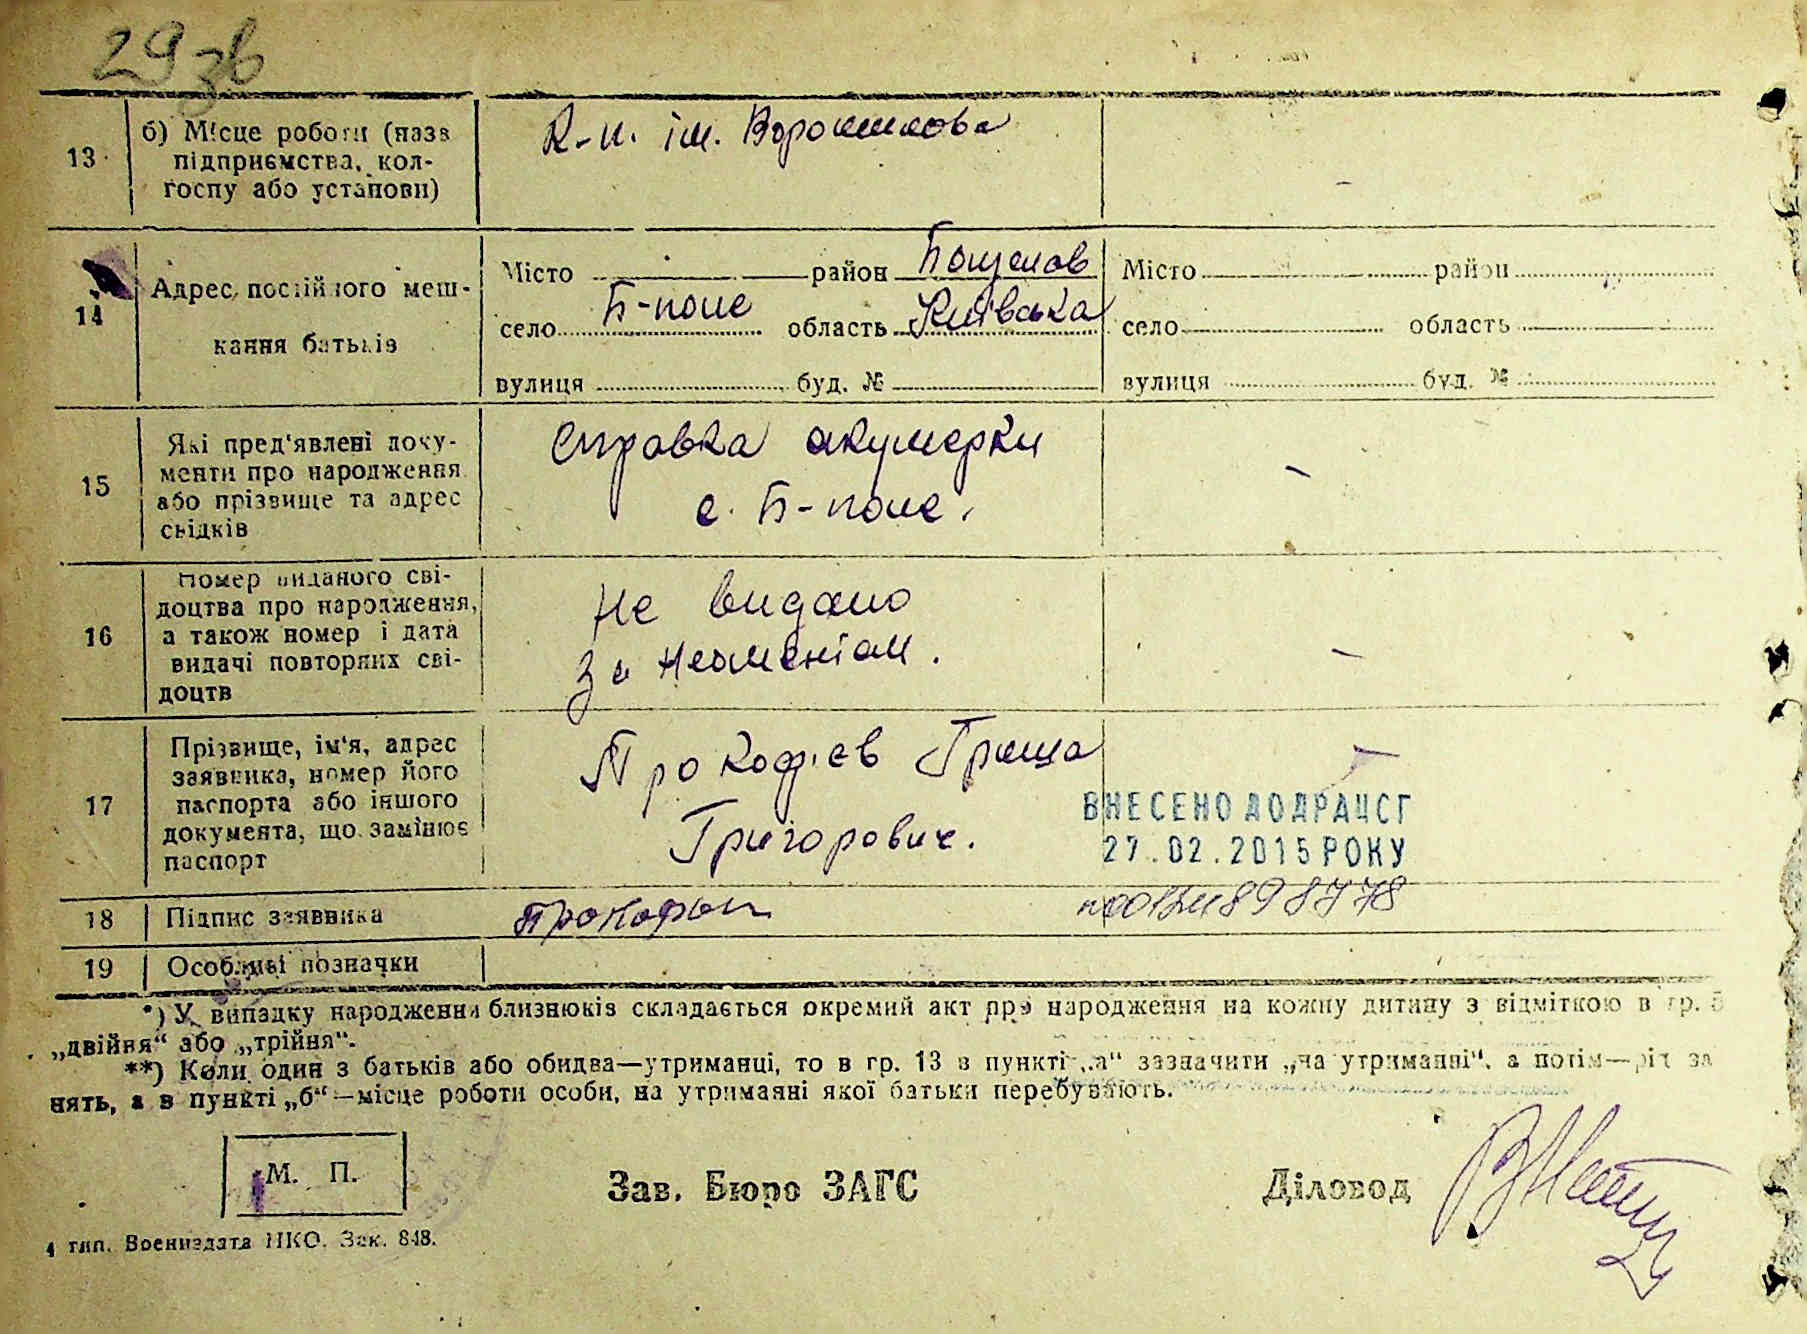 29 зв
13 б) Місце роботи (назв
підприємства, кол-
госпу або установи)
К-п. ім. Ворошилова
14 Адрес постійного меш-
кання батьків
Місто район
село Б-поле область Київська
вулиця буд. №
Місто район
село область
вулиця буд. №
15 Які пред'явлені доку-
менти про народження
або прізвище та адрес
свідків
справка акушерки
с. Б-поле.
16 Номер виданого сві-
доцтва про народження,
а також номер і дата
видачі повторних сві-
доцтв
Не видано
за неаменіам.
17 Прізвище, ім'я, адрес
заявника, номер його
паспорта або іншого
документа, що замінює
паспорт
Прокофієв Гриша
Григорович.
ВНЕСЕНО ДО ДРАЦСГ
27.02.2015 РОКУ
18 Підпис заявника
19 Особливі позначки
*) У випадку народження близнюків складається окремий акт про народження на кожну дитину з відміткою в гр. 5
„двійня“ або „трійня“.
**) Коли один з батьків або обидва—утриманці, то в гр. 13 в пункті „а“ зазначити „на утриманні“, а потім—рід за
нять, а в пункті „б“—місце роботи особи, на утриманні якої батьки перебувають.
М. П.
Зав. Бюро ЗАГС
Діловод
4 тип. Воениздата НКО. Зак. 848.